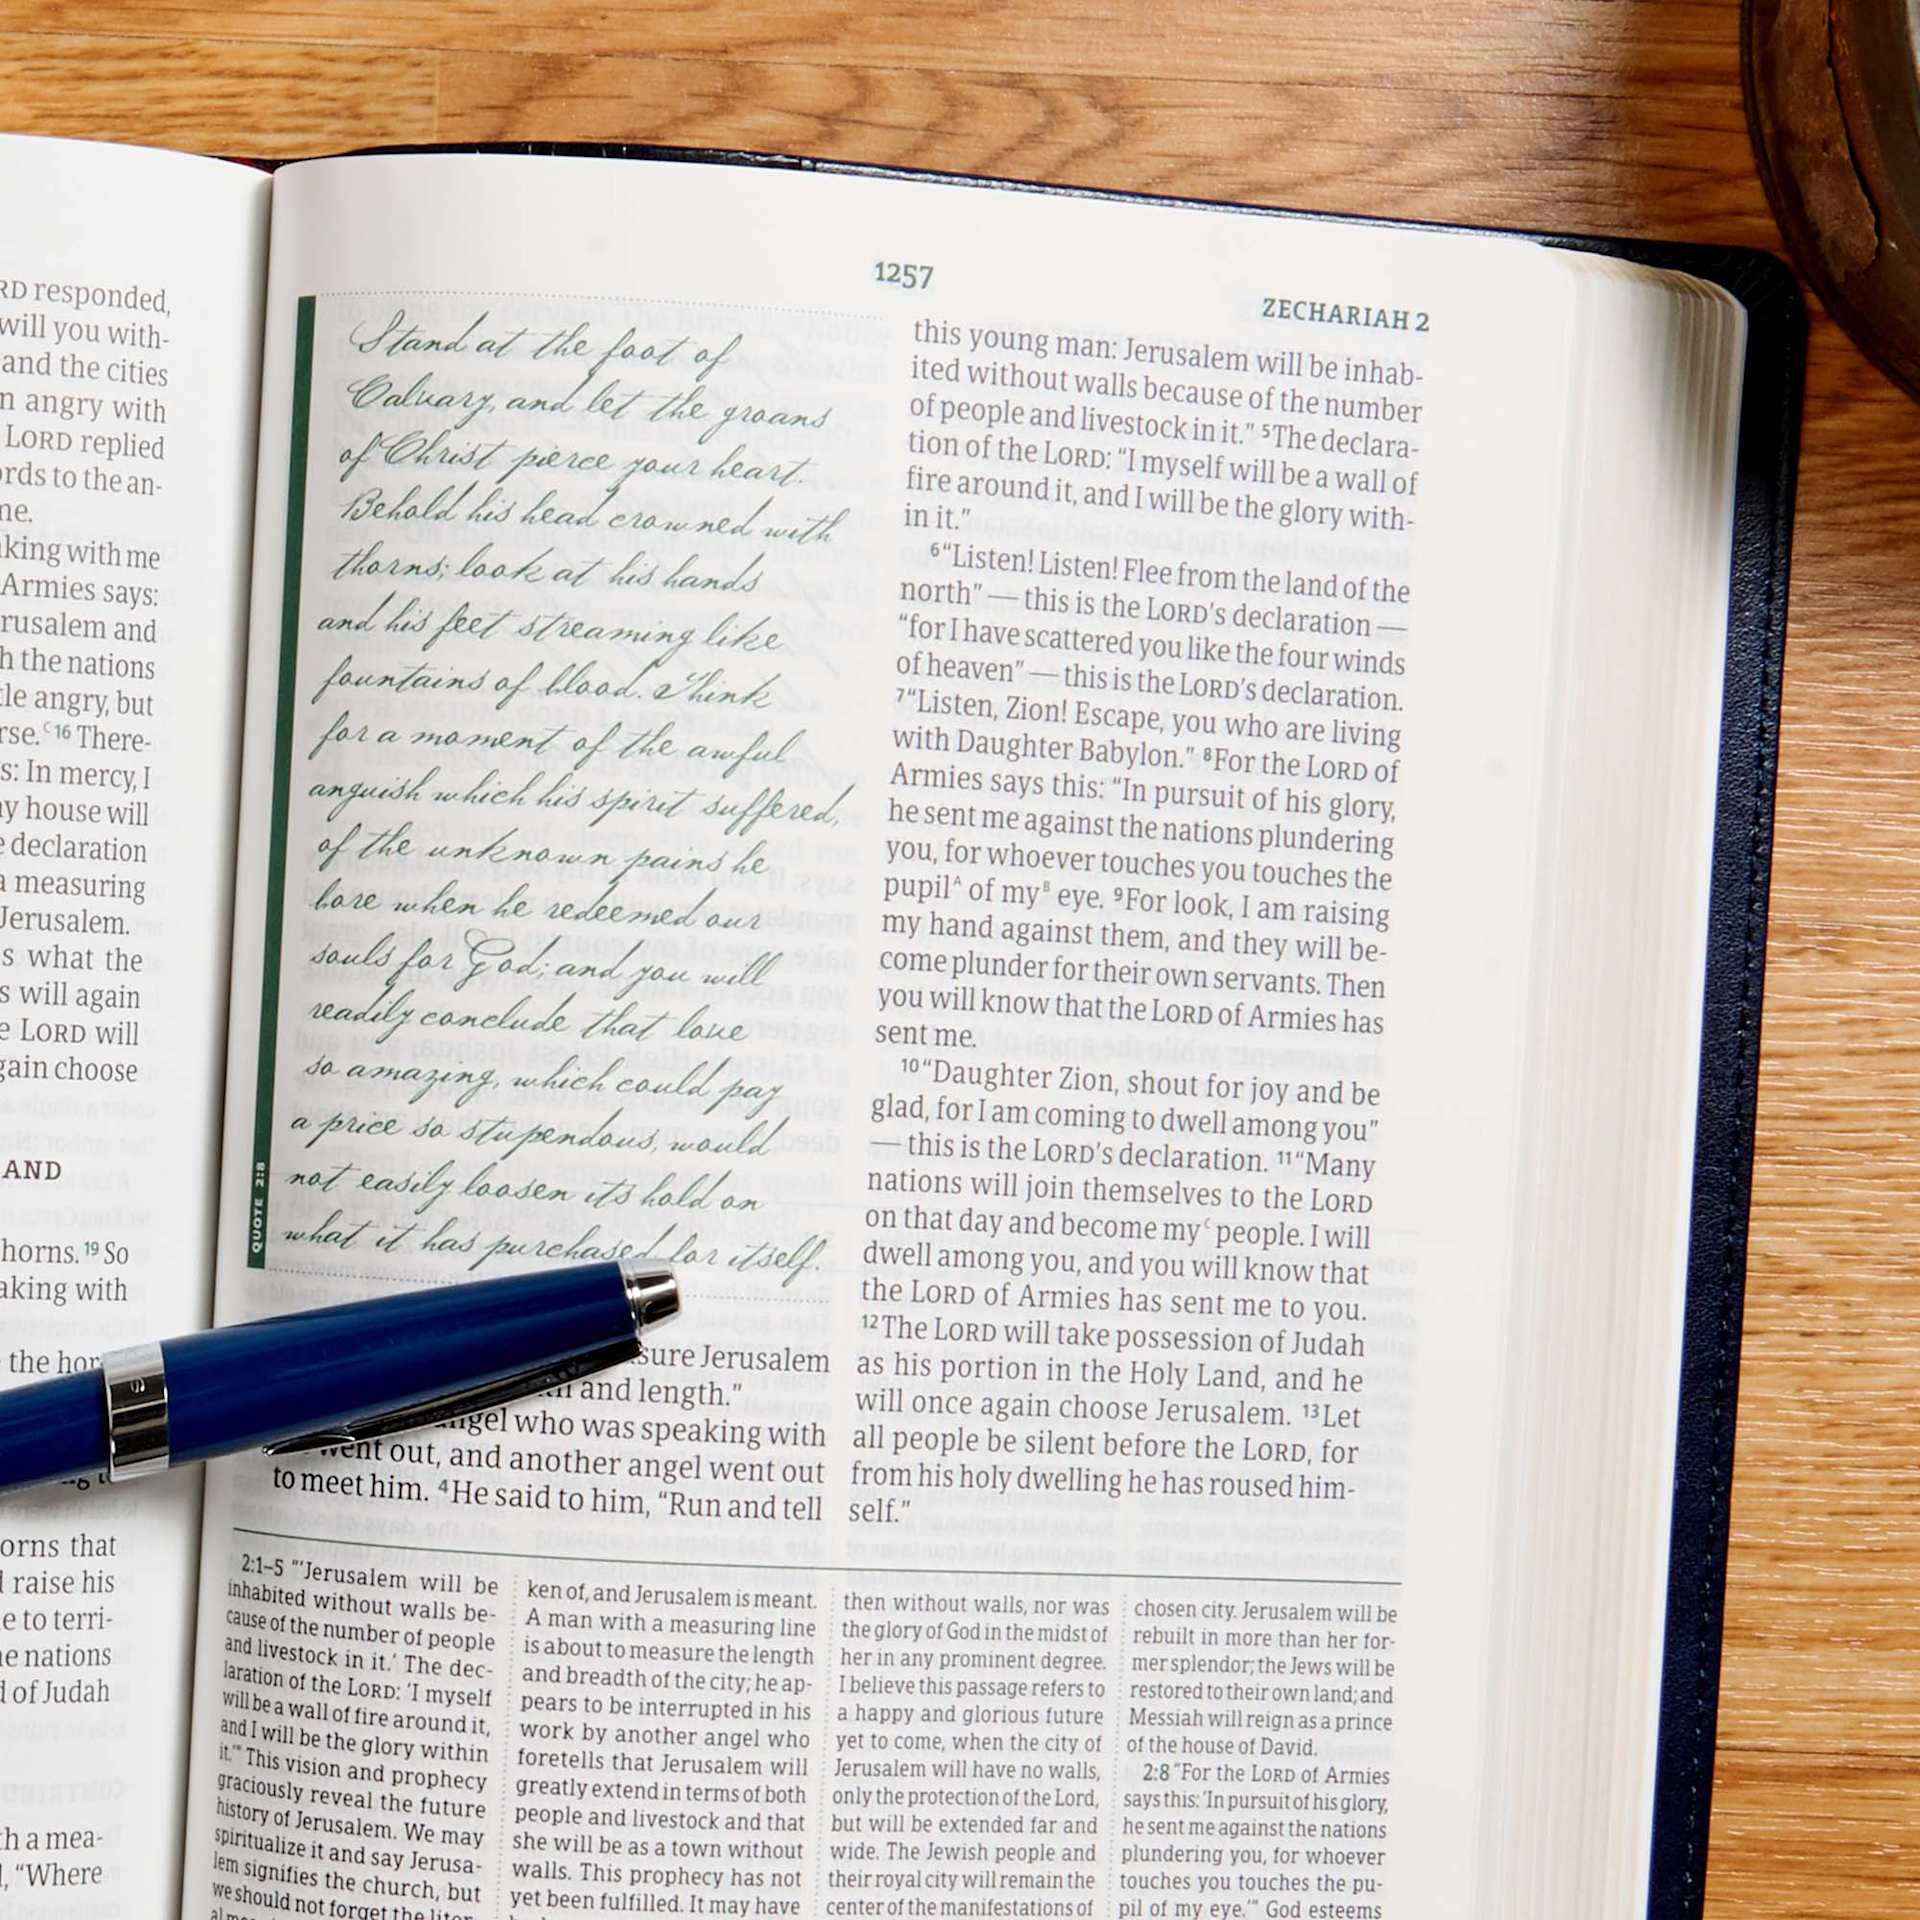 RD responded,
will you with-
and the cities
n angry with
LORD replied
ords to the an-
me.
aking with me
Armies says:
rusalem and
h the nations
tle angry, but
rse.ᶜ ¹⁶ There-
s: In mercy, I
ny house will
e declaration
a measuring
Jerusalem.
s what the
s will again
e LORD will
gain choose
AND
horns. ¹⁹ So
aking with
the hor
orns that
l raise his
e to terri-
he nations
d of Judah
th a mea-
l, “Where
1257
ZECHARIAH 2
Stand at the foot of
Calvary, and let the groans
of Christ pierce your heart.
Behold his head crowned with
thorns; look at his hands
and his feet streaming like
fountains of blood. Think
for a moment of the awful
anguish which his spirit suffered,
of the unknown pains he
bore when he redeemed our
souls for God; and you will
readily conclude that love
so amazing, which could pay
a price so stupendous, would
not easily loosen its hold on
what it has purchased for itself.
QUOTE 2:8
sure Jerusalem
and length.”
angel who was speaking with
went out, and another angel went out
to meet him. ⁴He said to him, “Run and tell
this young man: Jerusalem will be inhab-
ited without walls because of the number
of people and livestock in it.” ⁵The declara-
tion of the LORD: “I myself will be a wall of
fire around it, and I will be the glory with-
in it.”
⁶“Listen! Listen! Flee from the land of the
north” — this is the LORD’s declaration —
“for I have scattered you like the four winds
of heaven” — this is the LORD’s declaration.
⁷“Listen, Zion! Escape, you who are living
with Daughter Babylon.” ⁸For the LORD of
Armies says this: “In pursuit of his glory,
he sent me against the nations plundering
you, for whoever touches you touches the
pupilᴬ of myᴮ eye. ⁹For look, I am raising
my hand against them, and they will be-
come plunder for their own servants. Then
you will know that the LORD of Armies has
sent me.
¹⁰“Daughter Zion, shout for joy and be
glad, for I am coming to dwell among you”
— this is the LORD’s declaration. ¹¹“Many
nations will join themselves to the LORD
on that day and become myᶜ people. I will
dwell among you, and you will know that
the LORD of Armies has sent me to you.
¹²The LORD will take possession of Judah
as his portion in the Holy Land, and he
will once again choose Jerusalem. ¹³Let
all people be silent before the LORD, for
from his holy dwelling he has roused him-
self.”
2:1–5 “‘Jerusalem will be
inhabited without walls be-
cause of the number of people
and livestock in it.’ The dec-
laration of the LORD: ‘I myself
will be a wall of fire around it,
and I will be the glory within
it.’” This vision and prophecy
graciously reveal the future
history of Jerusalem. We may
spiritualize it and say Jerusa-
lem signifies the church, but
we should not forget the liter-
ken of, and Jerusalem is meant.
A man with a measuring line
is about to measure the length
and breadth of the city; he ap-
pears to be interrupted in his
work by another angel who
foretells that Jerusalem will
greatly extend in terms of both
people and livestock and that
she will be as a town without
walls. This prophecy has not
yet been fulfilled. It may have
then without walls, nor was
the glory of God in the midst of
her in any prominent degree.
I believe this passage refers to
a happy and glorious future
yet to come, when the city of
Jerusalem will have no walls,
only the protection of the Lord,
but will be extended far and
wide. The Jewish people and
their royal city will remain the
center of the manifestations of
chosen city. Jerusalem will be
rebuilt in more than her for-
mer splendor; the Jews will be
restored to their own land; and
Messiah will reign as a prince
of the house of David.
2:8 “For the LORD of Armies
says this: ‘In pursuit of his glory,
he sent me against the nations
plundering you, for whoever
touches you touches the pu-
pil of my eye.’” God esteems